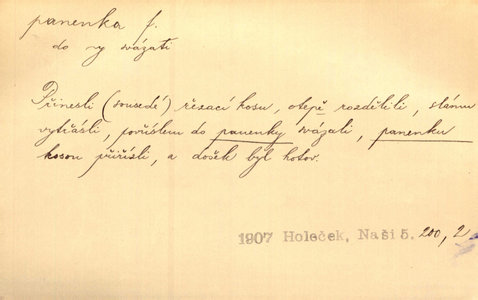 panenka f.
do ny svázati
Přinesli (sousedé) řezací kosu, otepě rozdělili, slámu
vytřásli, povříslem do panenky svázali, panenku
kosou přiřísli, a došek byl hotov.
1907 Holeček, Naši 5. 200, 2